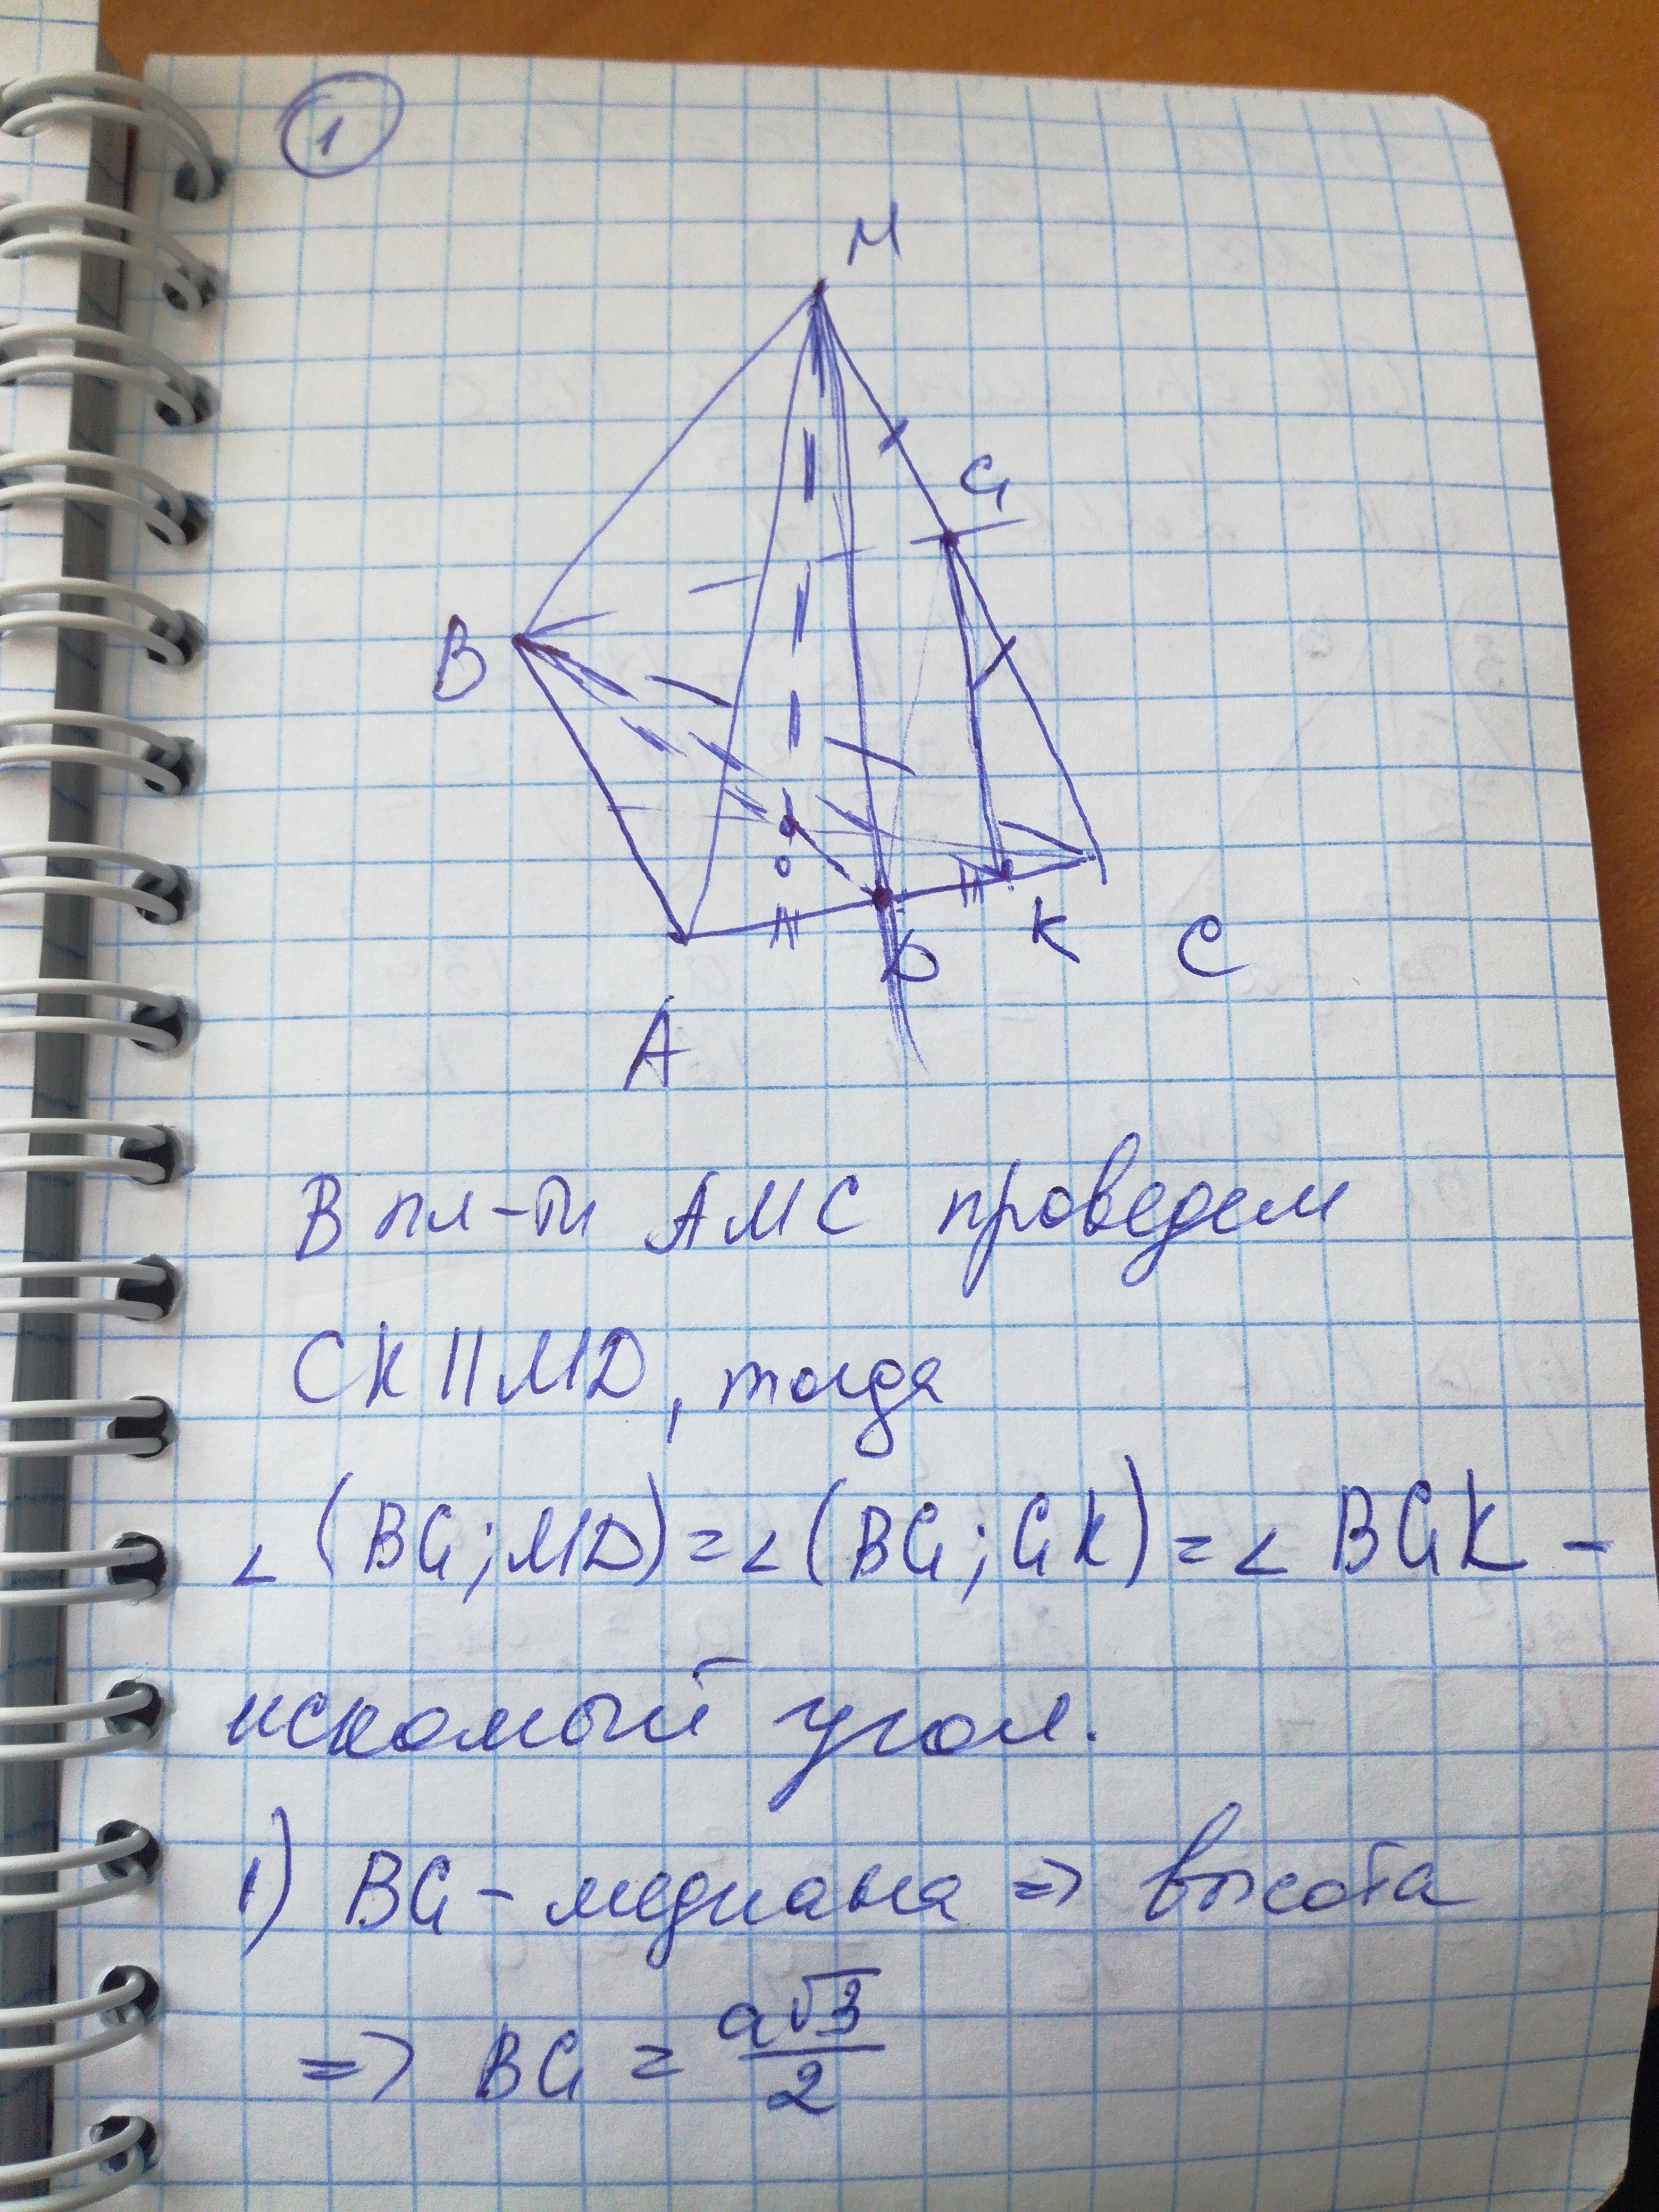 1
M
G
B
O
K
D
C
A
В пл-ти AMC проведем
GK || MD, тогда
∠(BG; MD) = ∠(BG; GK) = ∠BGK –
искомый угол.
1) BG – медиана => высота
=> BG = a√3/2